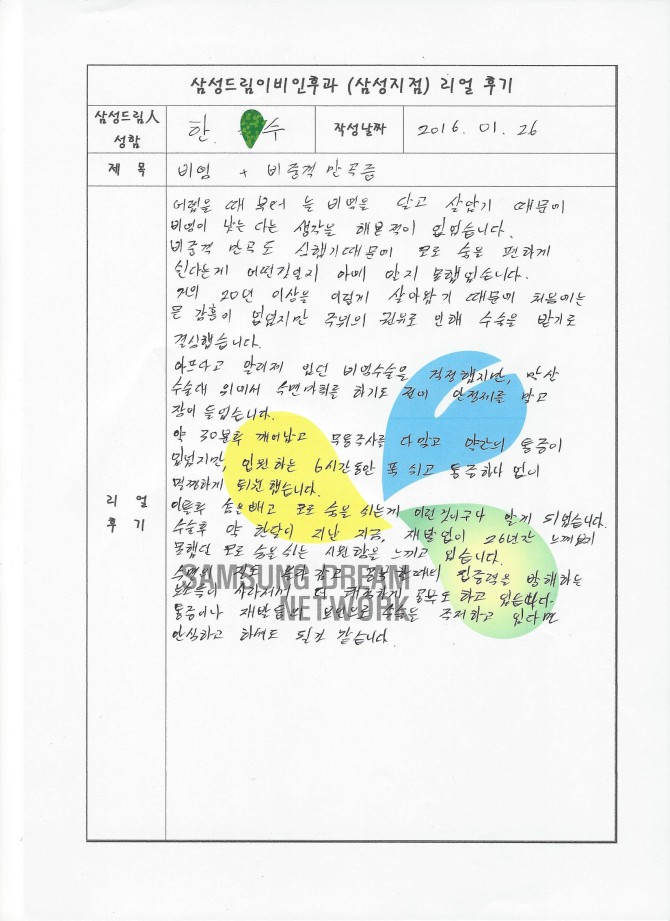 삼성드림이비인후과 (삼성지점) 리얼 후기
삼성드림人 성함 한. 수 작성날짜 2016. 01. 26
제 목 비염 + 비중격 만곡증
리 얼 후 기
어렸을 때 부터 늘 비염을 달고 살았기 때문에
비염이 낫는 다는 생각을 해본적이 없었습니다.
비중격 만곡도 심했기때문에 코로 숨을 편하게
쉰다는게 어떤건일지 아예 알지 못했었습니다.
거의 20년 이상을 이렇게 살아왔기 때문에 처음에는
큰 감흥이 없었지만 주위의 권유로 인해 수술을 받기로
결심했습니다.
아프다고 알려져 있던 비염수술을 걱정했지만, 막상
수술대 위에서 수면마취를 하기도 전에 안정제를 맞고
잠이 들었습니다.
약 30분후 깨어났고 무통주사를 다맞고 약간의 통증이
있었지만, 입원하는 6시간동안 푹 쉬고 통증하나 없이
멀쩡하게 퇴원했습니다.
이틀후 솜을빼고 코로 숨을 쉬는게 이런것이구나 알게 되었습니다.
수술후 약 한달이 지난 지금, 재발없이 26년간 느껴보지
못했던 코로 숨을 쉬는 시원함을 느끼고 있습니다.
집중력을 방해하는
공부도 하고 있습니다.
통증이나 수술을 주저하고 있다면
안심하고 하셔도 될것 같습니다
SAMSUNG DREAM
NETWORK